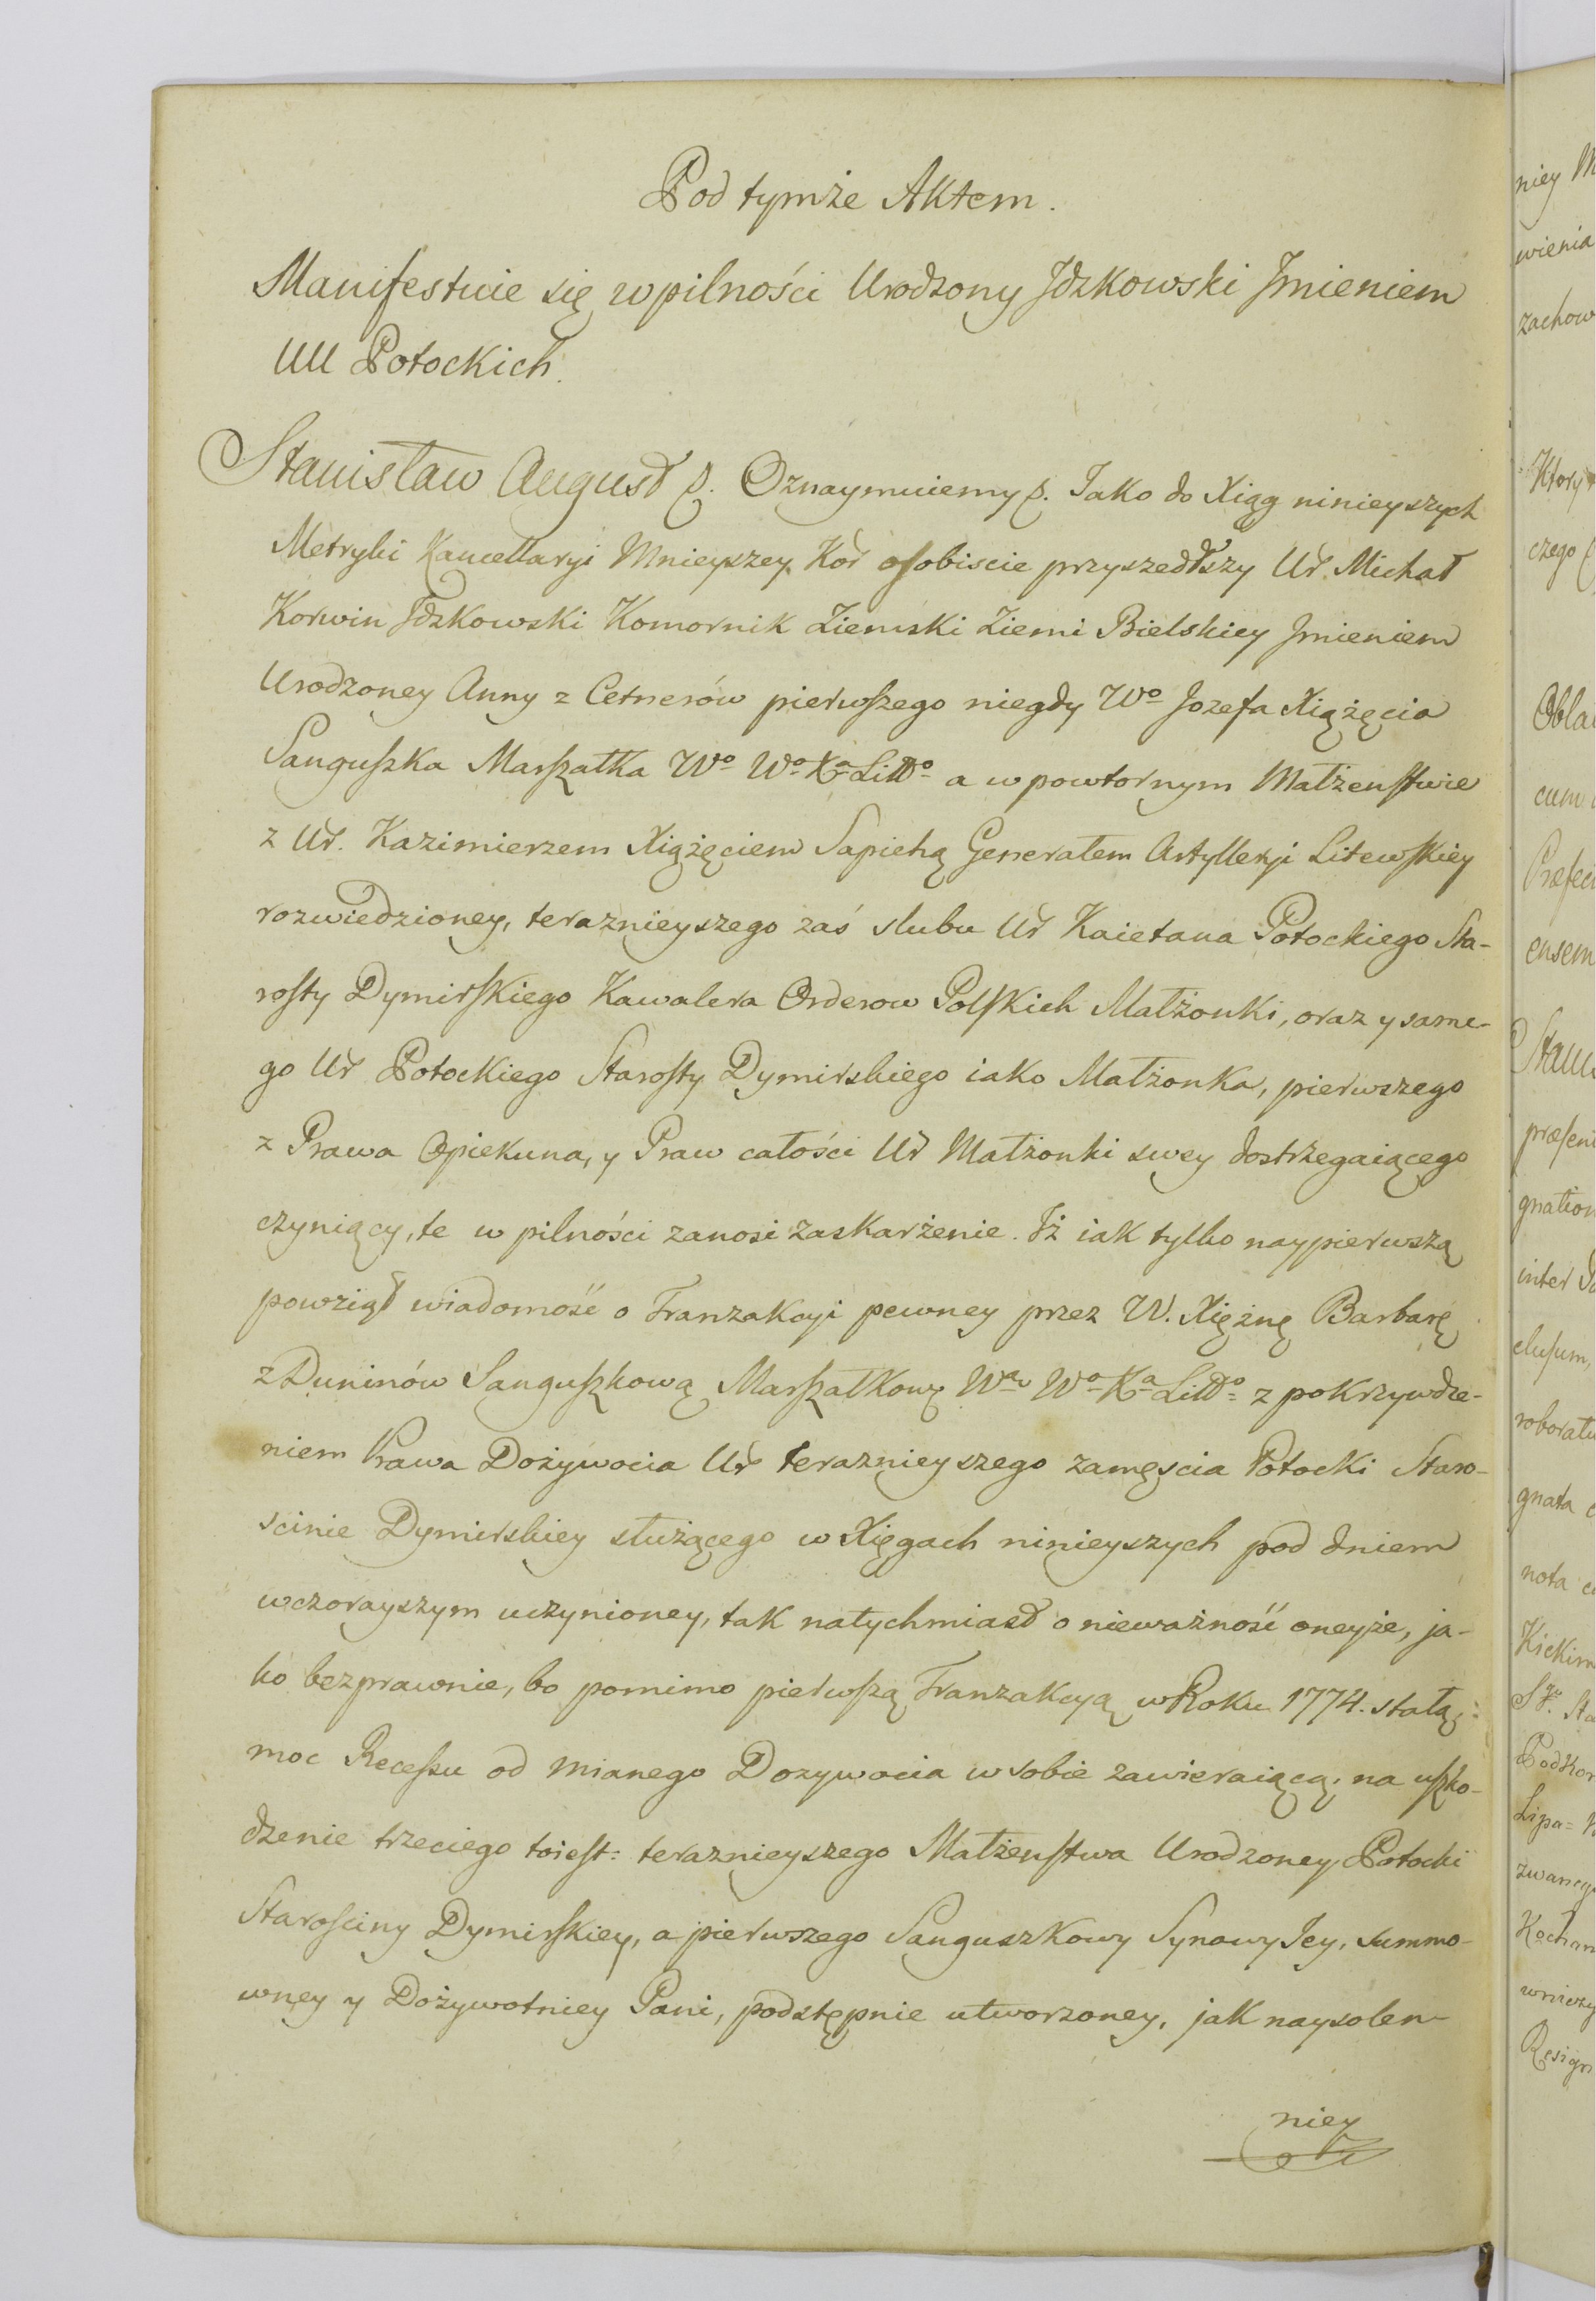 Pod tymże Aktem.
Manifestuie się w pilności Urodzony Idzkowski Imieniem
UU Potockich.
Stanisław August p. Oznaymuiemy p. Iako do Xiąg ninieyszych
Metryki Kancellaryi Mnieyszey Kor osobiscie przyszedłszy Ur. Michał
Korwin Idzkowski Komornik Ziemski Ziemi Bielskiey Imieniem
Urodzoney Anny z Cetnerów pierwszego niegdy Wo Jozefa Xiążęcia
Sanguszka Marszałka Wo Wo Xa Littº a w powtornym Małżenstwie
z Ur. Kazimierzem Xiążęciem Sapiehą Generałem Artylleryi Litewskiey
rozwiedzioney, teraznieyszego zaś slubu Ur Kaietana Potockiego Sta-
rosty Dymirskiego Kawalera Orderow Polskich Małżonki, oraz y same-
go Ur Potockiego Starosty Dymirskiego iako Małżonka, pierwszego
z Prawa Opiekuna, y Praw całości Ur Małżonki swey dostrzegaiącego
czyniący, te w pilności zanosi zaskarżenie. Iż iak tylko naypierwszą
powziął wiadomość o Tranzakcyi pewney przez W. Xiężnę Barbarę
z Duninów Sanguszkową Marszałkową Wa Wo Xa Littº z pokrzywdze-
niem Prawa Dożywocia Ur teraznieyszego zamęscia Potocki Staro-
scinie Dymirskiey służącego w Xięgach ninieyszych pod dniem
wczorayszym uczynioney, tak natychmiast o nieważność oneyże, ja-
ko bezprawnie, bo pomimo pierwszą Tranzakcyą w Roku 1774. stałą,
moc Recessu od mianego Dozywocia w sobie zawieraiącą, na uszko-
dzenie trzeciego toiest: teraznieyszego Małżenstwa Urodzoney Potocki
Starosciny Dymirskiey, a pierwszego Sanguszkowy Synowy Iey, summo-
wney y Dożywotniey Pani, podstępnie utworzoney, jak naysolen-
niey
niey
wienia
zachow
Ktory
czego
cum
ensem
inter
clusum,
gnata
nota
Lipa=
Kochan